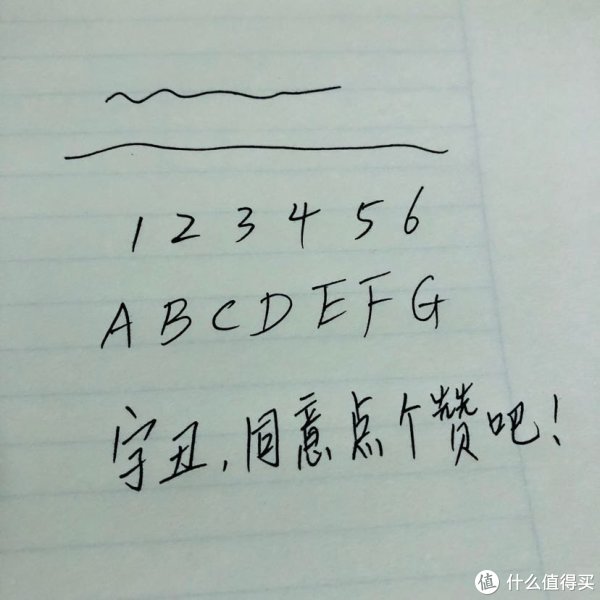 1 2 3 4 5 6
A B C D E F G
字丑,同意点个赞吧!
值 什么值得买